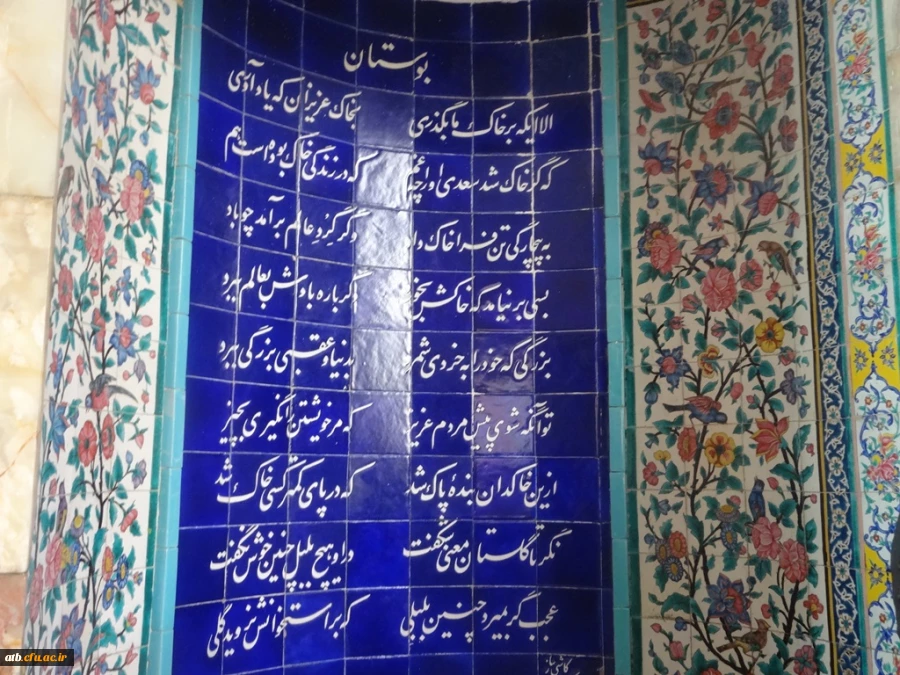 بوستان
الا ایکه بر خاک ما بگذری بخاک عزیزان که یاد آوری
که گر خاک شد سعدی او را چه غم که در زندگی خاک بوده است هم
به بیچارگی تن فرا خاک داد وگر گرد عالم بر آمد چو باد
بسی بر نیامد که خاکش خورد دگر باره بادش بعالم برد
بزرگی که خود را به خردی شمرد بدنیا و عقبی بزرگی ببرد
تو آنگه شوی پیش مردم عزیز که مر خویشتن را نگیری بچیز
ازین خاکدان بندۀ پاک شد که در پای کمتر کسی خاک شد
نگر تا گلستان معنی شکفت در او هیچ بلبل چنین خوش نگفت
عجب گر بمیرد چنین بلبلی که بر استخوانش نروید گلی
کاشی ساز
atb.cfu.ac.ir